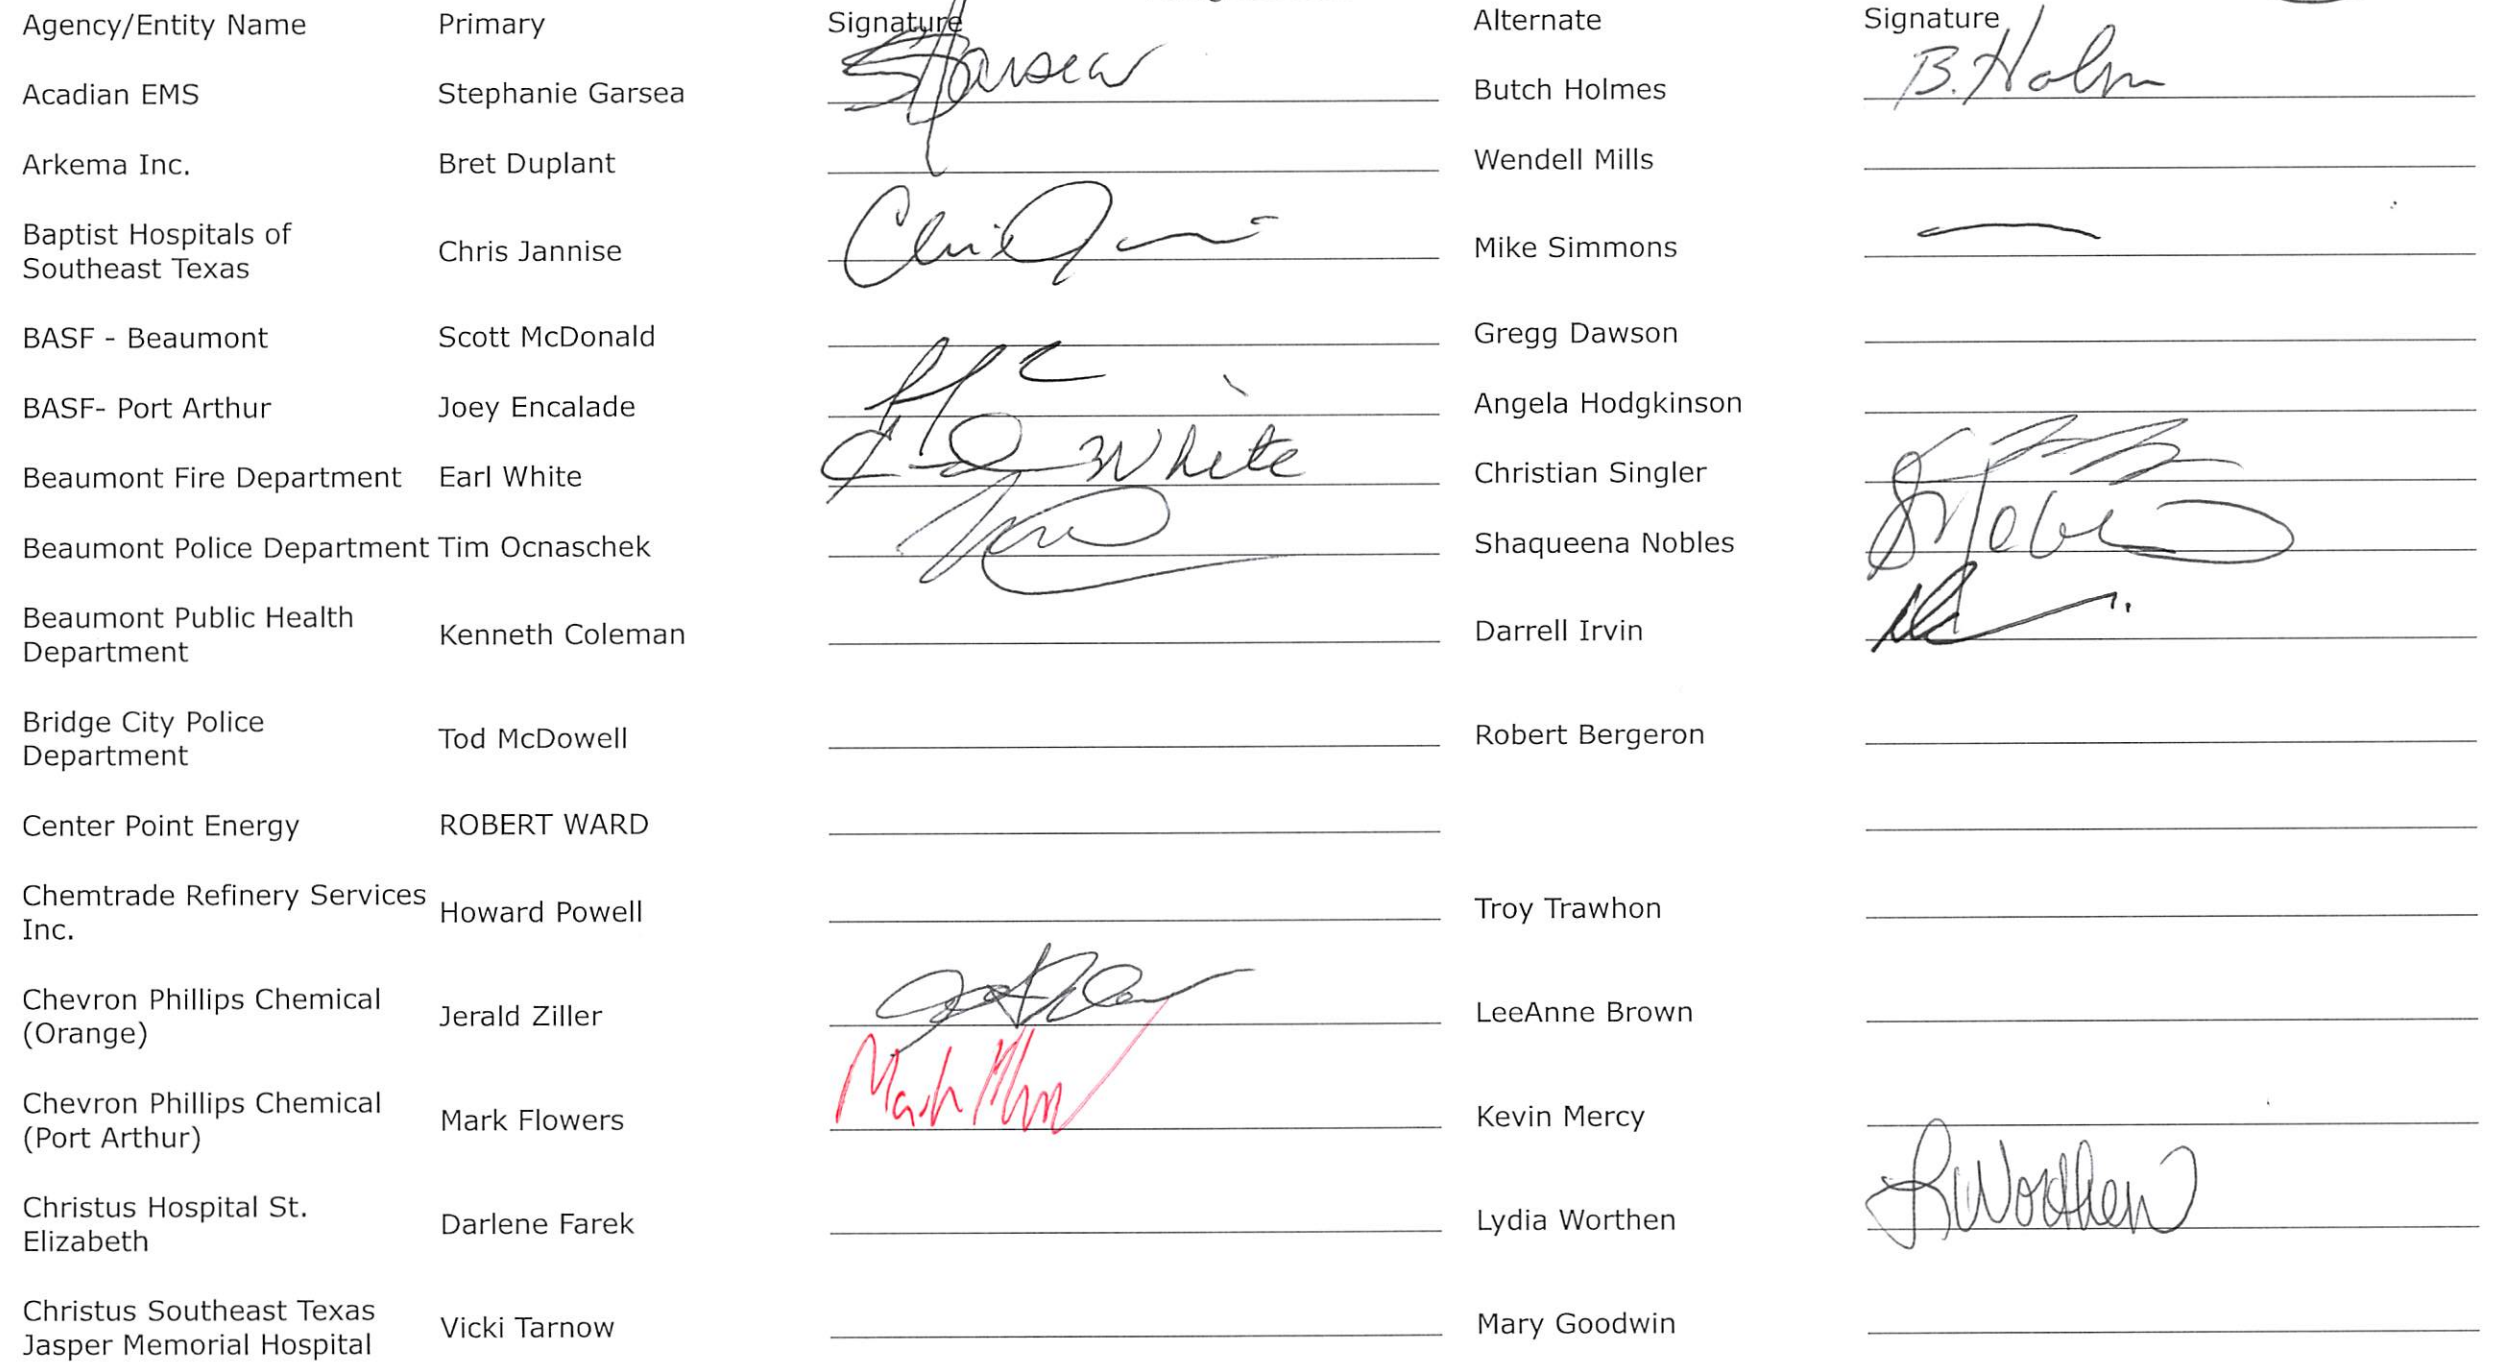 Agency/Entity Name Primary Signature Alternate Signature
Acadian EMS Stephanie Garsea SGarsea Butch Holmes B. Holm
Arkema Inc. Bret Duplant Wendell Mills
Baptist Hospitals of
Southeast Texas Chris Jannise Mike Simmons
BASF - Beaumont Scott McDonald Gregg Dawson
BASF- Port Arthur Joey Encalade Angela Hodgkinson
Beaumont Fire Department Earl White White Christian Singler
Beaumont Police Department Tim Ocnaschek Shaqueena Nobles
Beaumont Public Health
Department Kenneth Coleman Darrell Irvin
Bridge City Police
Department Tod McDowell Robert Bergeron
Center Point Energy ROBERT WARD
Chemtrade Refinery Services
Inc. Howard Powell Troy Trawhon
Chevron Phillips Chemical
(Orange) Jerald Ziller LeeAnne Brown
Chevron Phillips Chemical
(Port Arthur) Mark Flowers Kevin Mercy
Christus Hospital St.
Elizabeth Darlene Farek Lydia Worthen LWorthen
Christus Southeast Texas
Jasper Memorial Hospital Vicki Tarnow Mary Goodwin